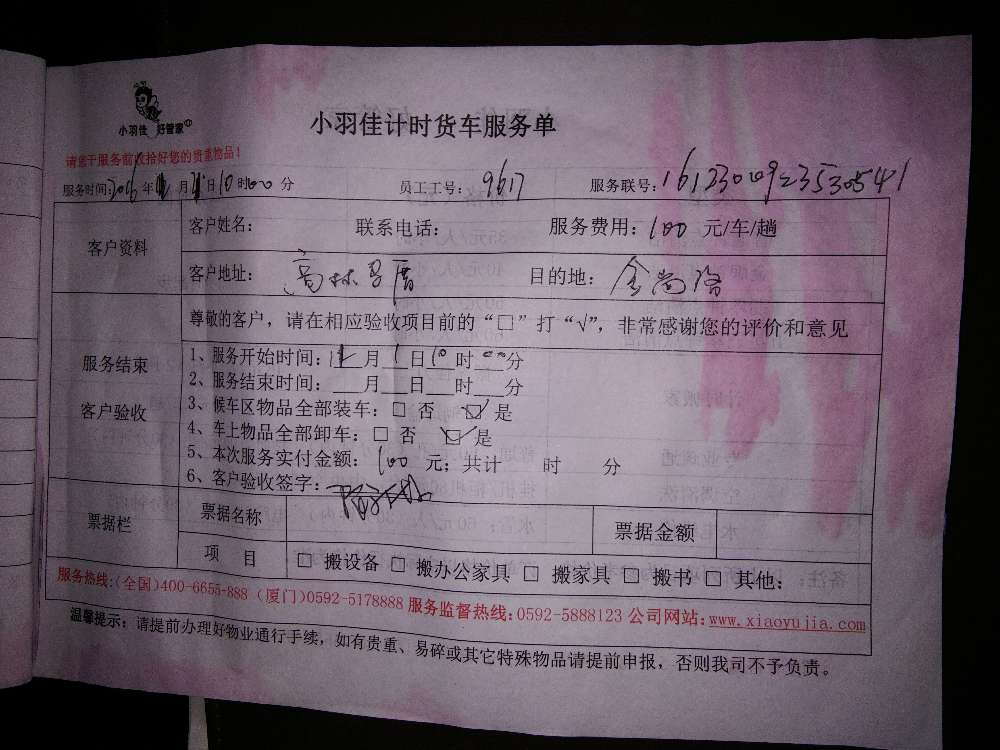 小羽佳 好管家
小羽佳计时货车服务单
请您于服务前收拾好您的贵重物品!
服务时间: 年 月 日10时00分 员工工号: 9617 服务联号: 1612300923530541
客户资料
客户姓名: 联系电话: 服务费用: 100 元/车/趟
客户地址: 高林 厝 目的地: 金尚路
服务结束
客户验收
尊敬的客户，请在相应验收项目前的“□”打“√”，非常感谢您的评价和意见
1、服务开始时间: 月1日10时00分
2、服务结束时间:___月___日___时___分
3、候车区物品全部装车: □ 否 ☑ 是
4、车上物品全部卸车: □ 否 ☑ 是
5、本次服务实付金额: 100 元; 共计 时 分
6、客户验收签字:
票据栏
票据名称 票据金额
项 目 □ 搬设备 □ 搬办公家具 □ 搬家具 □ 搬书 □ 其他:
服务热线:(全国)400-6655-888 (厦门)0592-5178888 服务监督热线:0592-5888123 公司网站:www.xiaoyujia.com
温馨提示: 请提前办理好物业通行手续，如有贵重、易碎或其它特殊物品请提前申报，否则我司不予负责。